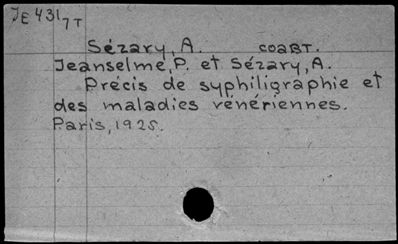 JE 431/7T
Sézary, A. соавт.
Jeanselme, P. et Sézary, A.
Précis de syphiligraphie et
des maladies vénériennes.
Paris, 1925.